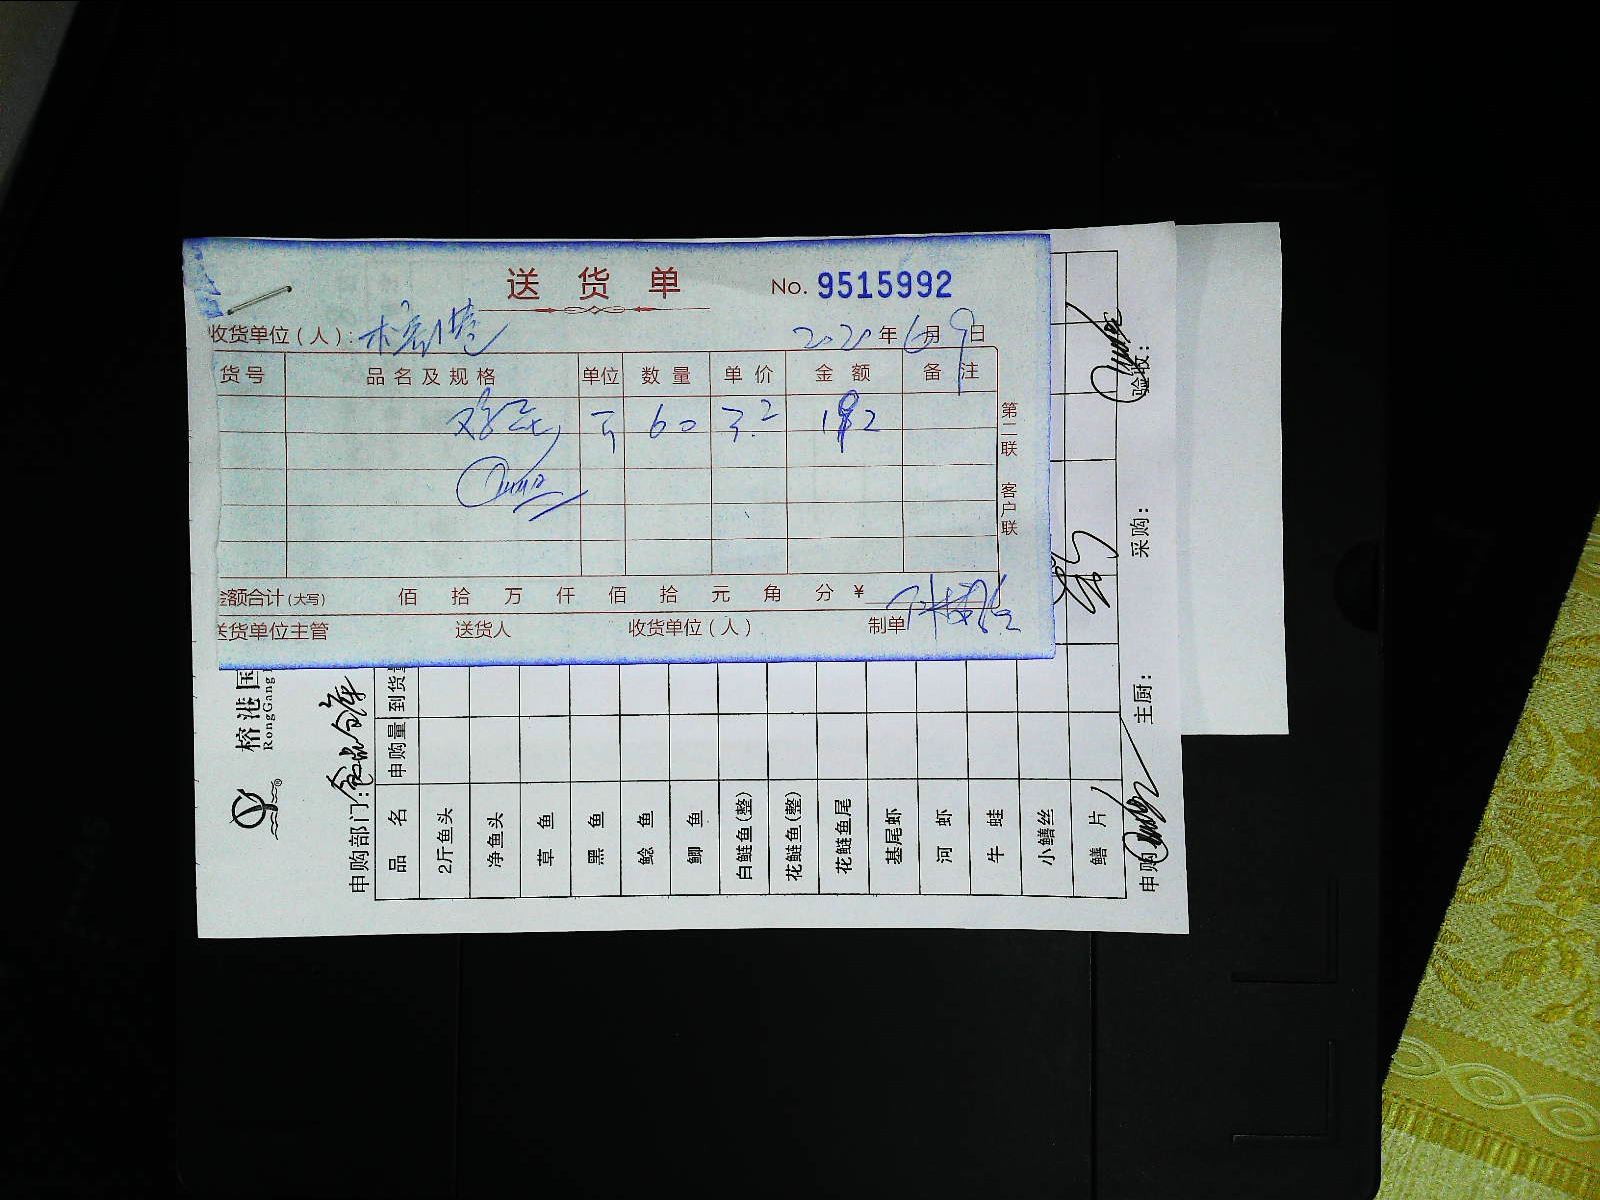 送货单 No. 9515992
收货单位(人): 榕港 2020年6月9日
货号 品名及规格 单位 数量 单价 金额 备注
鸡蛋 斤 60 3.2 192
第二联 客户联
金额合计(大写) 佰 拾 万 仟 佰 拾 元 角 分 ¥
送货单位主管 送货人 收货单位(人) 制单
榕港国
RongGang
申购部门:食品仓库
品名 申购量 到货
2斤鱼头
净鱼头
草鱼
黑鱼
鲶鱼
鲫鱼
白鲢鱼(整)
花鲢鱼(整)
花鲢鱼尾
基尾虾
河虾
牛蛙
小鳝丝
鳝片
申购 主厨: 采购: 验收: